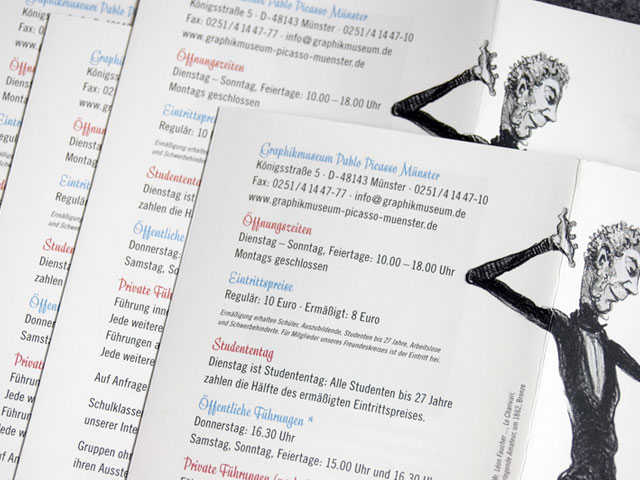 Graphikmuseum Pablo Picasso Münster
Königsstraße 5 · D-48143 Münster · 0251/4 14 47-10
Fax: 0251/4 14 47-77 · info@graphikmuseum.de
www.graphikmuseum-picasso-muenster.de
Öffnungszeiten
Dienstag – Sonntag, Feiertage: 10.00 – 18.00 Uhr
Montags geschlossen
Eintrittspreise
Regulär: 10 Euro · Ermäßigt: 8 Euro
Ermäßigung erhalten Schüler, Auszubildende, Studenten bis 27 Jahre, Arbeitslose
und Schwerbehinderte. Für Mitglieder unseres Freundeskreises ist der Eintritt frei.
Studententag
Dienstag ist Studententag: Alle Studenten bis 27 Jahre
zahlen die Hälfte des ermäßigten Eintrittspreises.
Öffentliche Führungen *
Donnerstag: 16.30 Uhr
Samstag, Sonntag, Feiertage: 15.00 Uhr und 16.30
Private Führungen
Mr. Léon Faucher
Le Charivari,
Amateur, um 1862, Bronze
Königsstraße 5 · D-48143 Münster · 0251/4 14 47-10
Fax: 0251/4 14 47-77 · info@graphikmuseum.de
www.graphikmuseum-picasso-muenster.de
Öffnungszeiten
Dienstag – Sonntag, Feiertage: 10.00 – 18.00 Uhr
Montags geschlossen
Eintrittspreise
Regulär: 10
Ermäßigung erhalten
und Schwerbehinderte
Studententag
Dienstag ist
zahlen die Hä
Öffentliche
Donnerstag:
Samstag, So
Private Füh
Führung inn
Jede weitere
Führungen a
Jede weitere
Auf Anfrage
Schulklasse
unserer Inte
Gruppen oh
ihren Ausste
Graphikmuseum
Königs
Fax: 0
www.g
Öffnun
Dienst
Montag
Eintrit
Regulä
Ermäßigung
und Schwerb
Studente
Dienst
zahlen
Öffen
Donner
Samsta
Private
Führun
Jede w
Führun
Jede w
Auf Anf
Schulkl
unserer
Gruppe
ihren A